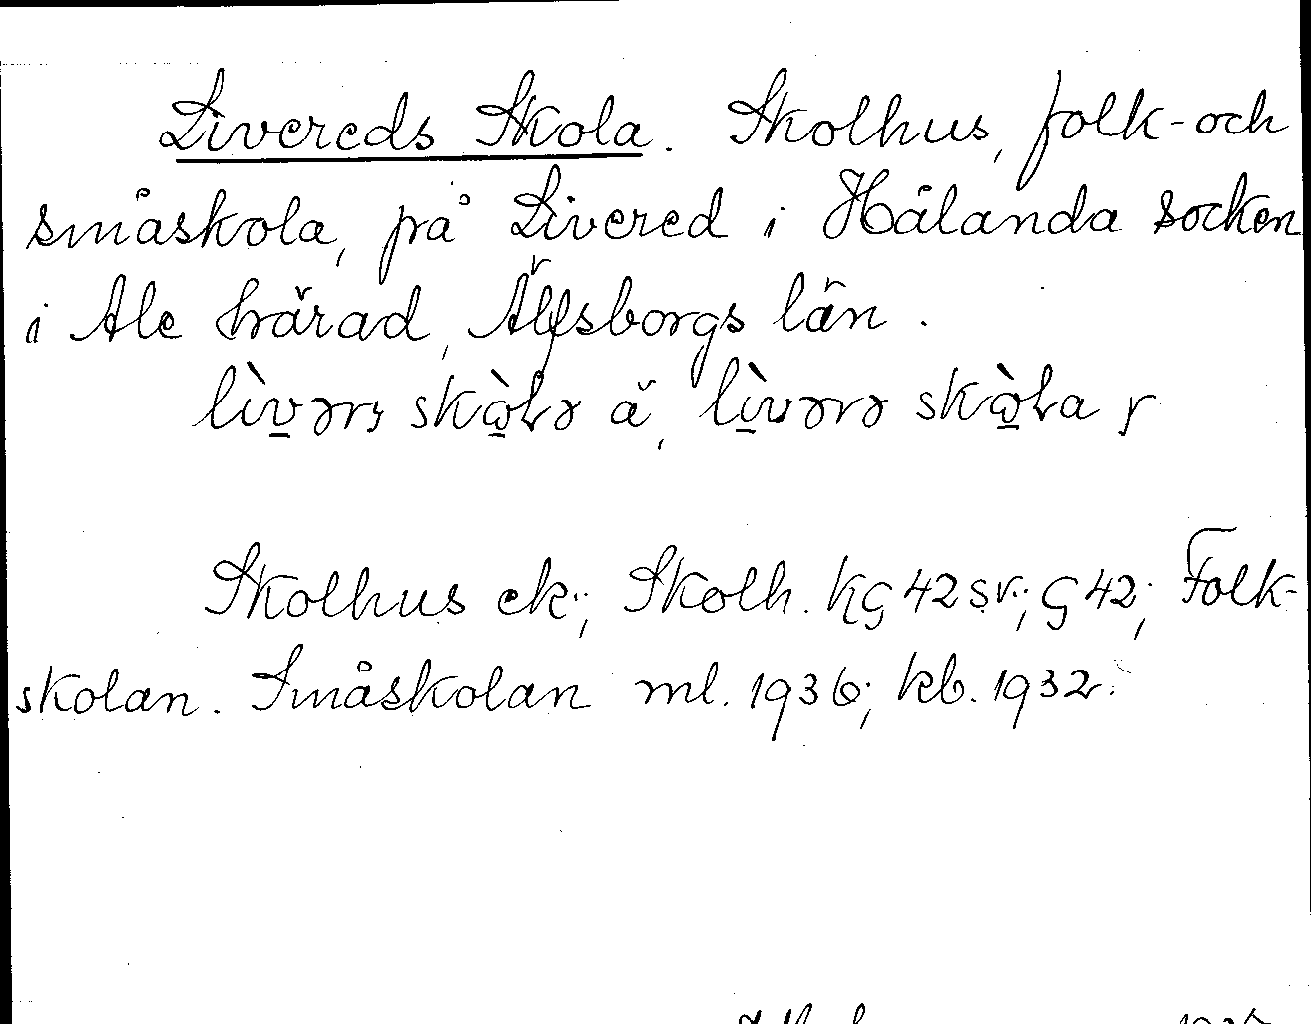 Livereds Skola. Skolhus, folk- och
småskola, på Livered i Hålanda socken
i Ale härad, Älfsborgs län.
Skolhus ek.; Skolh. KG 42 sv.; G 42; Folk-
skolan. Småskolan ml. 1936; kb. 1932.